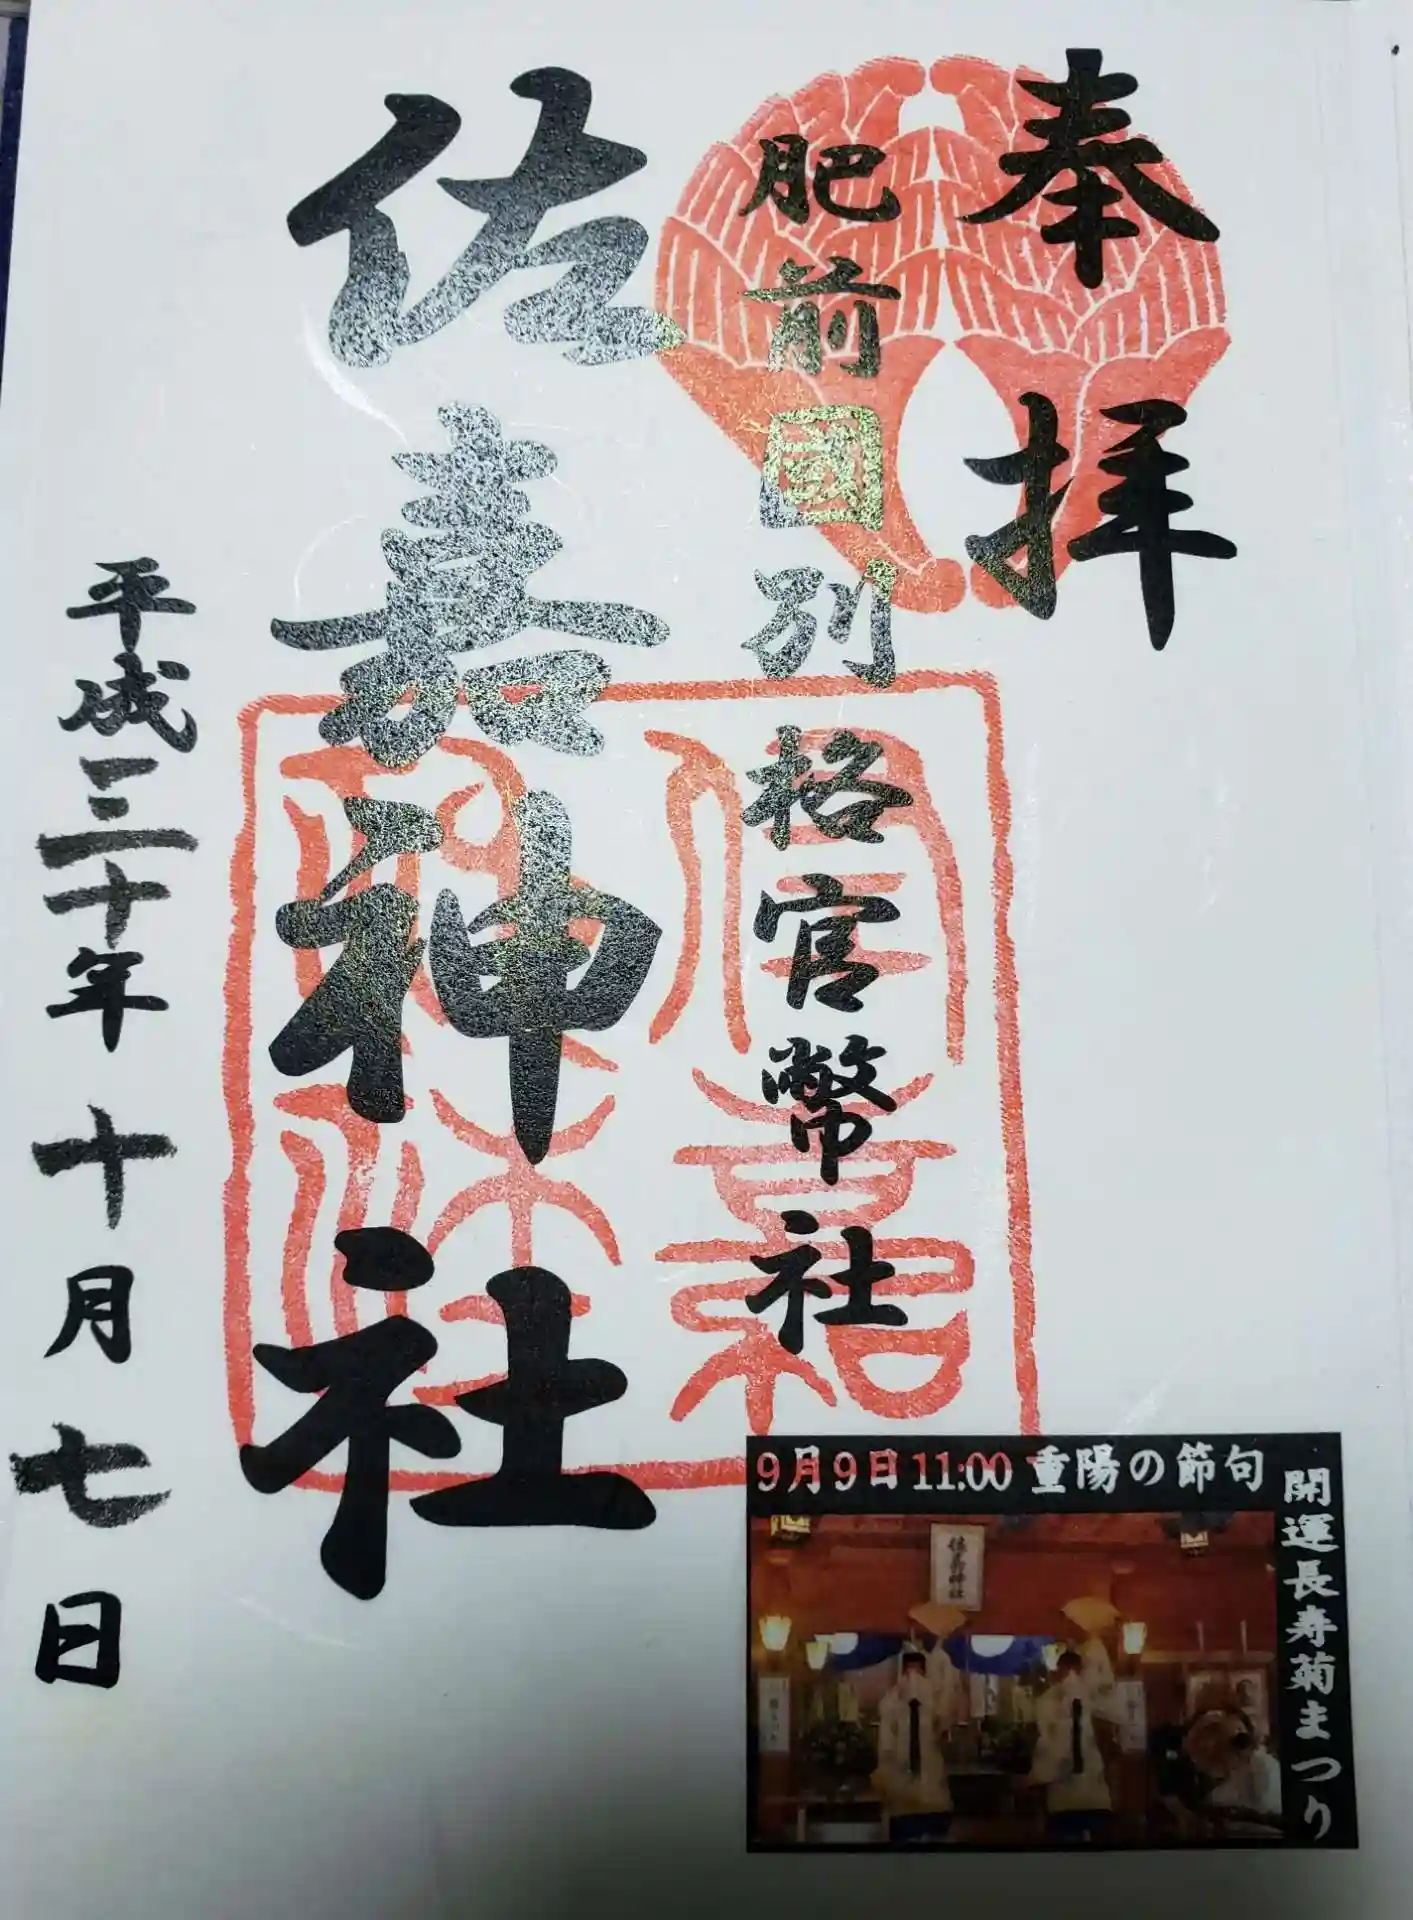 奉拝
肥前國別格官幣社
佐嘉神社
平成三十年十月七日
佐嘉
神社
9月9日11:00 重陽の節句
開運長寿菊まつり
佐嘉神社